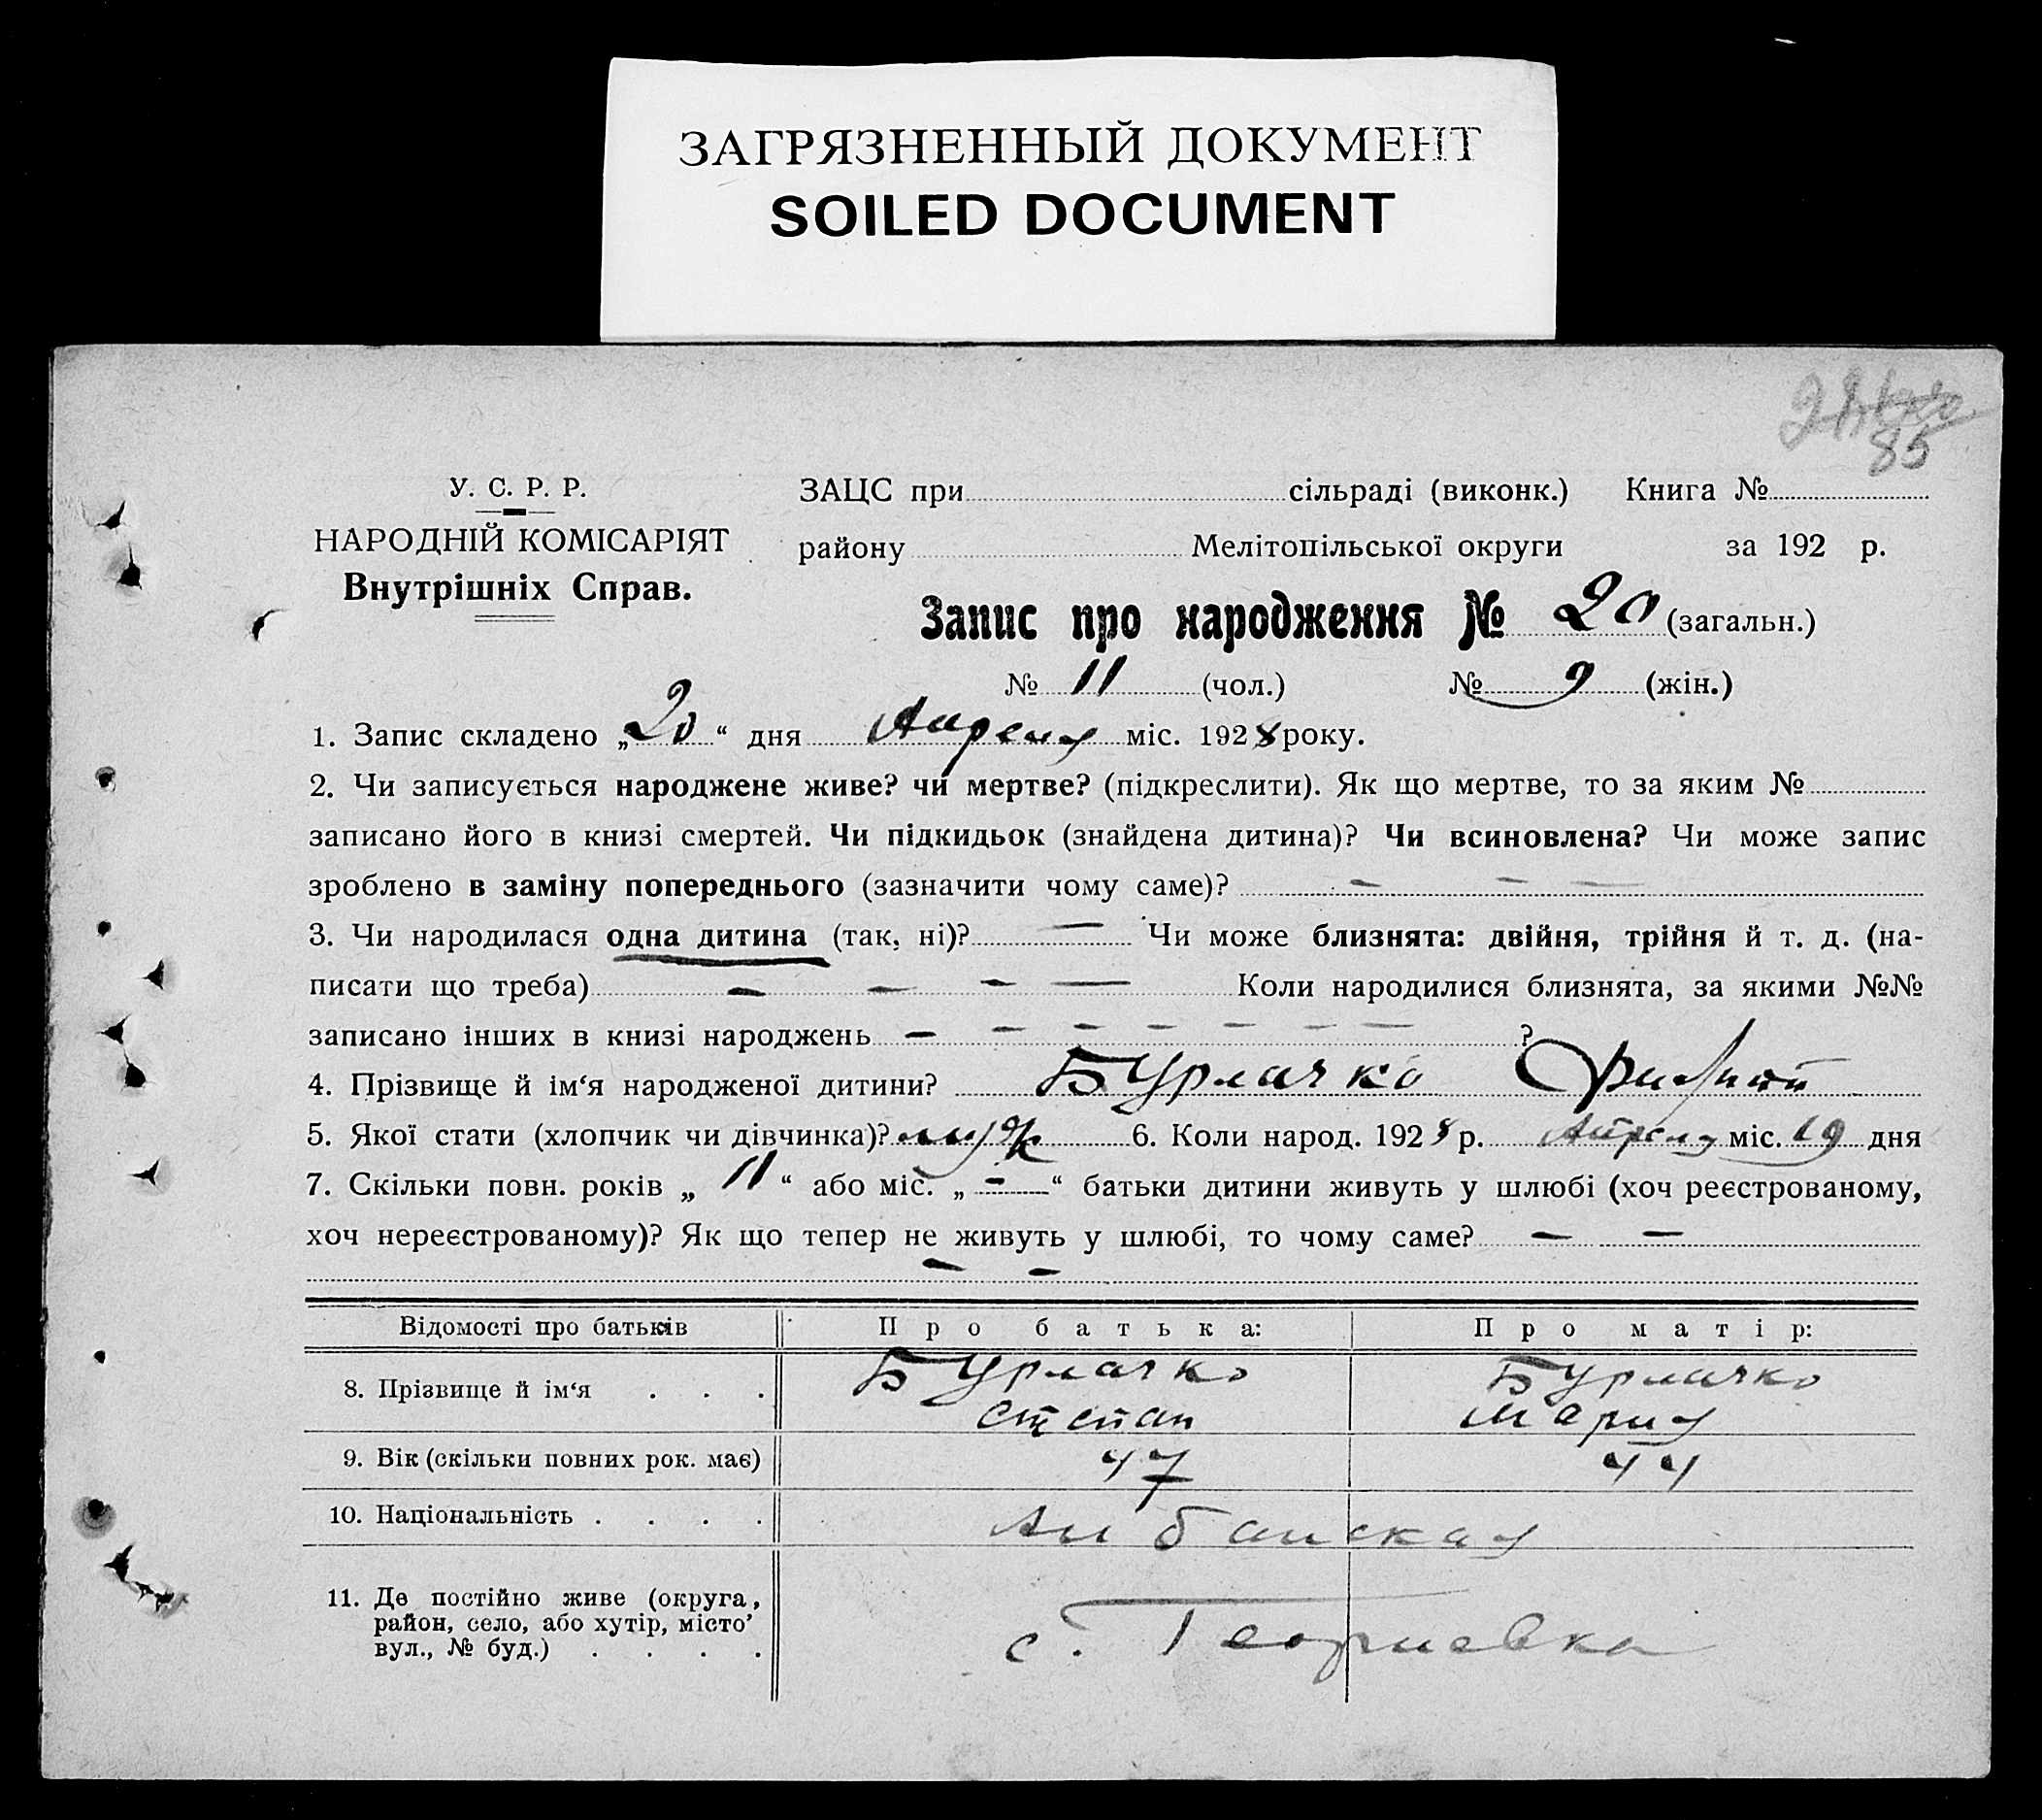 ЗАГРЯЗНЕННЫЙ ДОКУМЕНТ
SOILED DOCUMENT
85
У. С. Р. Р.
НАРОДНІЙ КОМІСАРІЯТ
Внутрішніх Справ.
ЗАЦС при сільраді (виконк.) Книга №
району Мелітопільської округи за 192 р.
Запис про народження № 20 (загальн.)
№ 11 (чол.) № 9 (жін.)
1. Запис складено „20“ дня Апреля міс. 1928 року.
2. Чи записується народжене живе? чи мертве? (підкреслити). Як що мертве, то за яким №
записано його в книзі смертей. Чи підкидьок (знайдена дитина)? Чи всиновлена? Чи може запис
зроблено в заміну попереднього (зазначити чому саме)? — — —
3. Чи народилася одна дитина (так, ні)? — Чи може близнята: двійня, трійня й т. д. (на-
писати що треба) — — — — Коли народилися близнята, за якими №№
записано інших в книзі народжень — — — — — — — ?
4. Прізвище й ім‘я народженої дитини? Бурлачко Филипп
5. Якої стати (хлопчик чи дівчинка)? муж 6. Коли народ. 1928 р. Апреля міс. 19 дня
7. Скільки повн. років „11“ або міс. „-“ батьки дитини живуть у шлюбі (хоч реєстрованому,
хоч нереєстрованому)? Як що тепер не живуть у шлюбі, то чому саме? — —
— —
Відомості про батьків Про батька: Про матір:
8. Прізвище й ім‘я . . . Бурлачко Степан Бурлачко Мария
9. Вік (скільки повних рок. має) 47 44
10. Національність . . . . Албанская
11. Де постійно живе (округа,
район, село, або хутір, місто’
вул., № буд.) . . . . с. Георгиевка